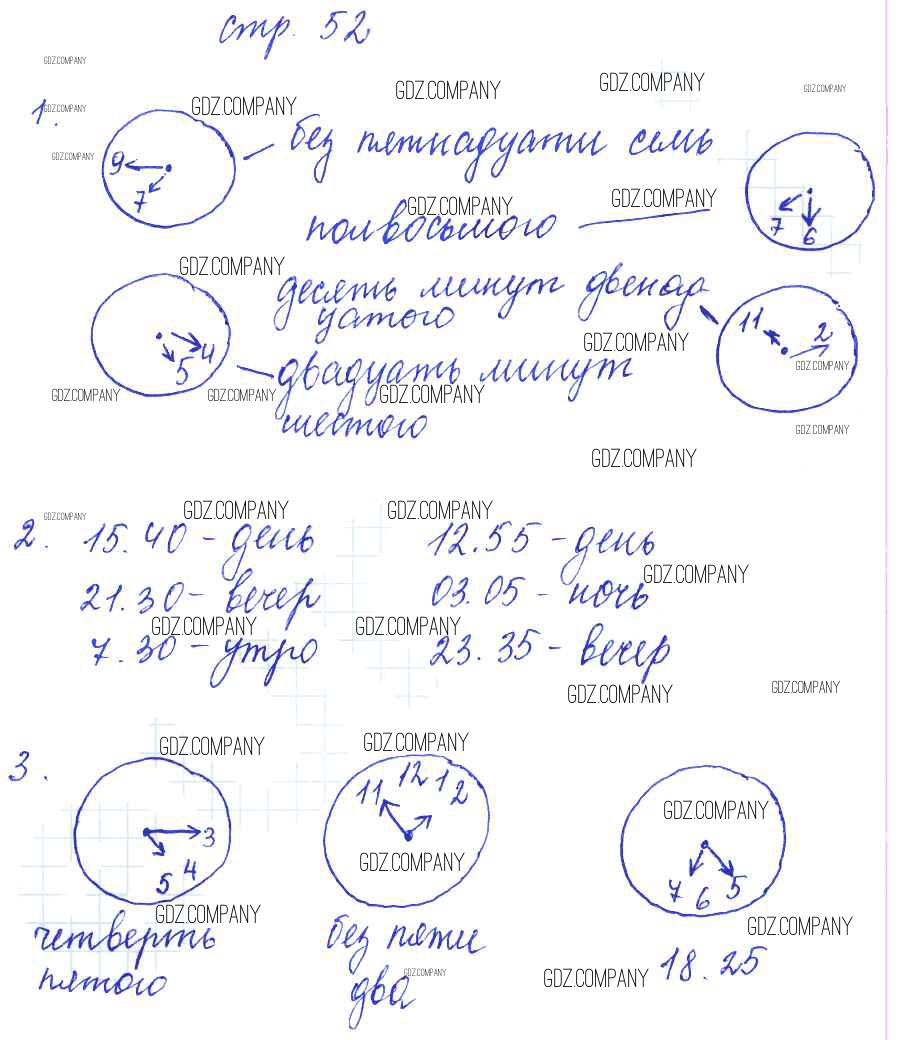 стр. 52
GDZ.COMPANY
GDZ.COMPANY GDZ.COMPANY GDZ.COMPANY GDZ.COMPANY GDZ.COMPANY
1.
GDZ.COMPANY 9 7 без пятнадцати семь
GDZ.COMPANY GDZ.COMPANY
полвосьмого 7 6
GDZ.COMPANY
десять минут двенад
цатого 11 2
GDZ.COMPANY
5 4 GDZ.COMPANY
двадцать минут
GDZ.COMPANY GDZ.COMPANY GDZ.COMPANY
шестого GDZ.COMPANY
GDZ.COMPANY
GDZ.COMPANY GDZ.COMPANY GDZ.COMPANY
2. 15.40 - день 12.55 - день
GDZ.COMPANY
21.30 - вечер 03.05 - ночь
GDZ.COMPANY GDZ.COMPANY
7.30 - утро 23.35 - вечер
GDZ.COMPANY GDZ.COMPANY
GDZ.COMPANY GDZ.COMPANY
3.
3 4 5 11 12 1 2 GDZ.COMPANY
GDZ.COMPANY 7 6 5
GDZ.COMPANY GDZ.COMPANY
четверть без пяти 18.25
пятого два
GDZ.COMPANY GDZ.COMPANY